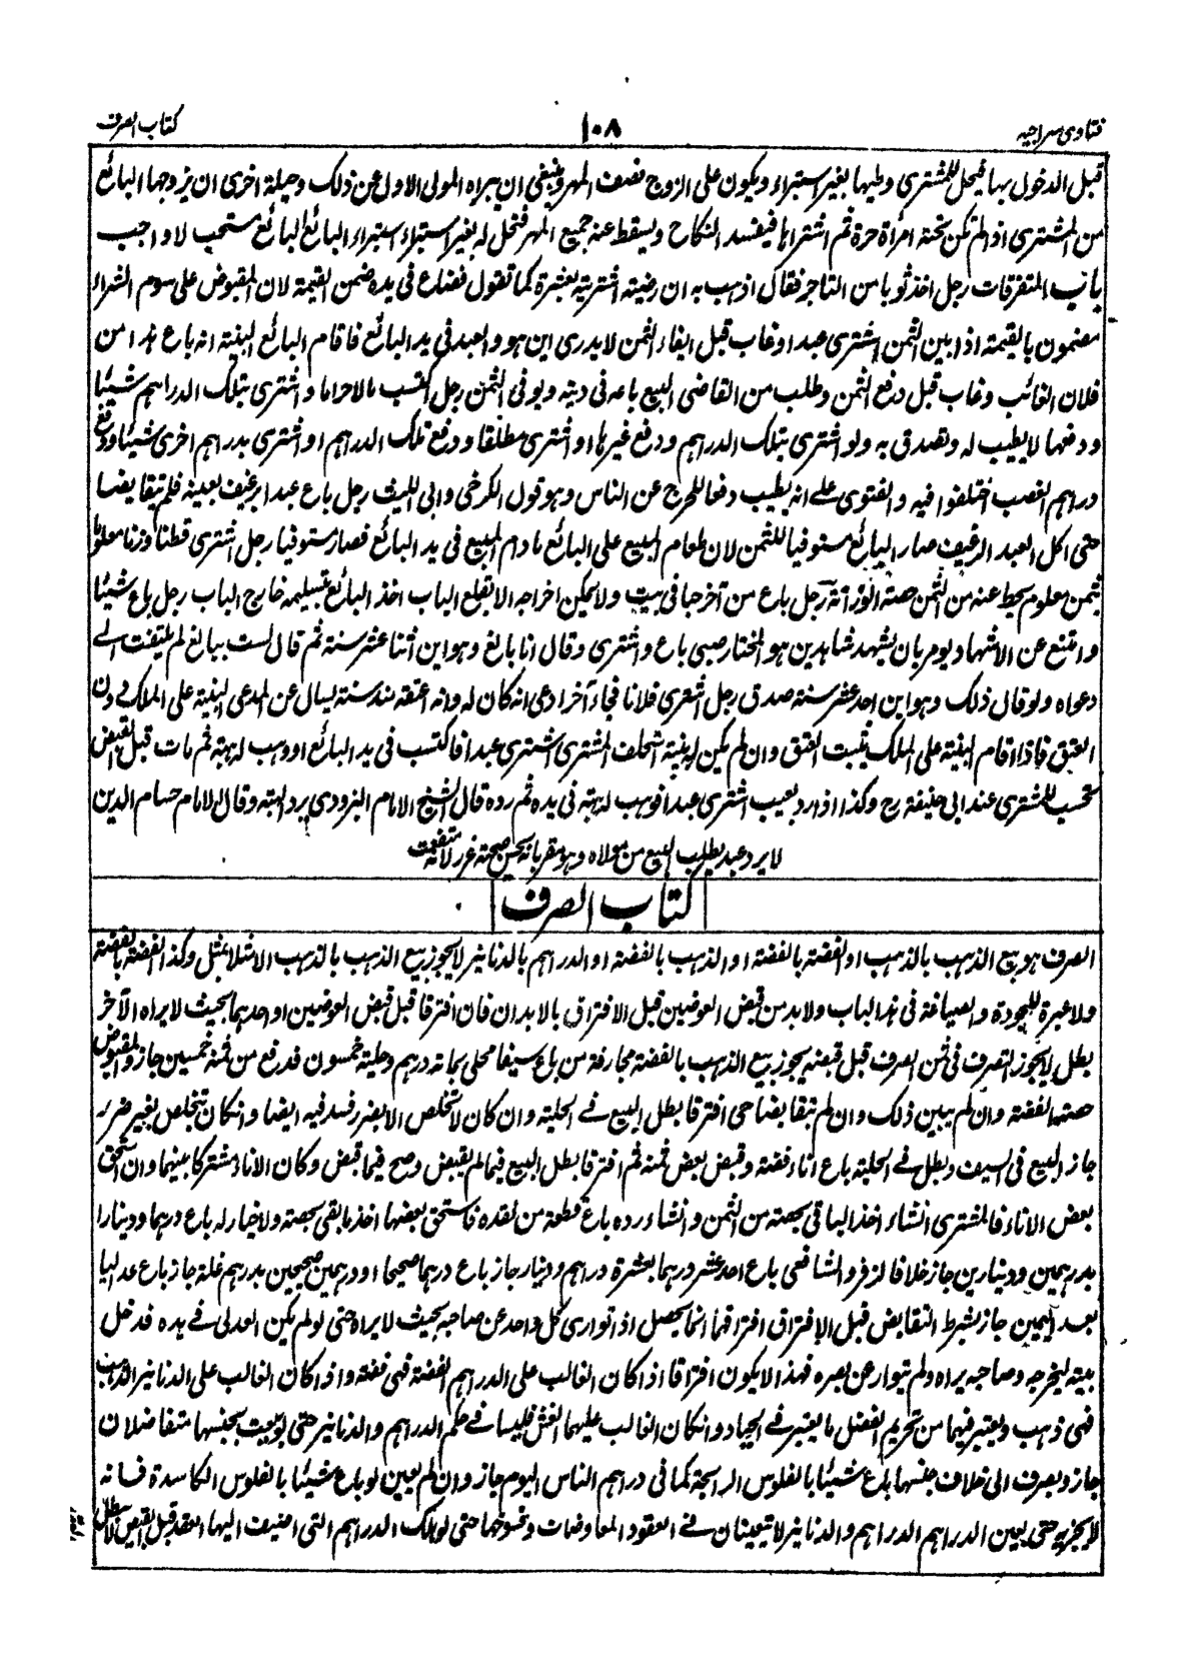 فتاوى سراجيه
١٠٨
كتاب الصرف
قبل الدخول بها فيحل للمشترى وطيها بغير استبراء ويكون على الزوج نصف المهر وينبغى ان يبراه المولى الاول عن ذلك وحيلة اخرى ان يزوجها البائع
من المشترى اذا لم تكن تحته امرأة حرة ثم اشتراها فيفسد النكاح ويسقط عنه جميع المهر فتحل له بغير استبراء استبراء البائع البائع مستحب لا واجب
باب المتفرقات رجل اخذ ثوبا من التاجر فقال اذهب به ان رضيته اشتريته بعشرة كما تقول فضاع فى يده ضمن القيمة لان المقبوض على سوم الشراء
مضمون بالقيمة اذا بين الثمن اشترى عبدا وغاب قبل ايفاء الثمن لا يدرى اين هو والعبد فى يد البائع فاقام البائع البينة انه باع هذا من
فلان الغائب وغاب قبل دفع الثمن وطلب من القاضى البيع باعه فى دينه ويوفى الثمن رجل اكتسب مالا حراما واشترى بتلك الدراهم شيئا
ودفعها لا يطيب له وتصدق به ولو اشترى بتلك الدراهم ودفع غيرها او اشترى مطلقا ودفع تلك الدراهم او اشترى بدراهم اخرى شيئا ودفع
دراهم الغصب اختلفوا فيه والفتوى على انه يطيب دفعا للحرج عن الناس وهو قول الكرخى وابى الليث رجل باع عبدا برغيف بعينه فلم يتقابضا
حتى اكل العبد الرغيف صار البائع مستوفيا للثمن لان طعام المبيع على البائع مادام المبيع فى يد البائع فصار مستوفيا رجل اشترى قطنا وزنا معلوما
بثمن معلوم يحط عنه من الثمن حصة الوزانة رجل باع من آخر حبا فى بيت ولا يمكن اخراجه الا بقلع الباب اخذ البائع بتسليمه خارج الباب رجل باع شيئا
وامتنع عن الاشهاد يومر بان يشهد شاهدين هو المختار صبى باع واشترى وقال انا بالغ وهو ابن اثنا عشر سنة ثم قال لست ببالغ لم يلتفت الى
دعواه ولو قال ذلك وهو ابن احد عشر سنة صدق رجل اشترى فلانا فجاء آخر ادعى انه كان له وانه اعتقه منذ سنة يسال عن المدعى البينة على الملك دون
العتق فاذا اقام البينة على الملك يثبت العتق وان لم يكن له بينة استحلف المشترى اشترى عبدا فاكتسب فى يد البائع او وهب له هبة ثم مات قبل القبض
تحسب للمشترى عند ابى حنيفة رح وكذا اذا رد بعيب اشترى عبدا فوهب له هبة فى يده ثم رده قال الشيخ الامام البزودى يرد الهبة وقال الامام حسام الدين
لا يرد عبد يطلب البيع من مولاه وهو مقر بانه يحسن صحبته عزر لانه متعنت
كتاب الصرف
الصرف هو بيع الذهب بالذهب او الفضة بالفضة او الذهب بالفضة او الدراهم بالدنانير لا يجوز بيع الذهب بالذهب الا مثلا بمثل وكذا الفضة بالفضة
ولا عبرة للجودة والصياغة فى هذا الباب ولا بد من قبض العوضين قبل الافتراق بالابدان فان افترقا قبل قبض العوضين او احدهما بحيث لا يراه الآخر
بطل لا يجوز التصرف فى ثمن الصرف قبل قبضه يجوز بيع الذهب بالفضة مجازفة من باع سيفا محلى بمائة درهم وحلية خمسون فدفع من ثمنه خمسين جاز والمقبوض
حصة الفضة وان لم يبين ذلك وان لم يتقابضا حتى افترقا بطل البيع فى الحلية وان كان لا تتخلص الا بضرر فسد فيه ايضا وانكان تتخلص بغير ضرر
جاز البيع فى السيف وبطل فى الحلية باع اناء فضة وقبض بعض ثمنه ثم افترقا بطل البيع فيما لم يقبض وصح فيما قبض وكان الاناء مشتركا بينهما وان استحق
بعض الاناء فالمشترى انشاء اخذ الباقى بحصته من الثمن وانشاء رده باع قطعة من نقده فاستحق بعضها اخذ ما بقى بحصته ولا خيار له باع درهما ودينارا
بدرهمين ودينارين جاز خلافا لزفر والشافعى باع احد عشر درهما بعشرة دراهم ودينار جاز باع درهما صحيحا او درهمين صحيحين بدرهم غلة جاز باع عدليا
بعدليين جاز بشرط التقابض قبل الافتراق افتراقهما انما يحصل اذا توارى كل واحد عن صاحبه بحيث لا يراه حتى لو لم يكن العدلى فى يده فدخل
بيته ليخرجه وصاحبه يراه ولم يتوار عن بصره فهذا لا يكون افتراقا اذا كان الغالب على الدراهم الفضة فهى فضة واذا كان الغالب على الدنانير الذهب
فهى ذهب ويعتبر فيهما من تحريم الفضل ما يعتبر فى الجياد وانكان الغالب عليهما الغش فليسا فى حكم الدراهم والدنانير حتى لو بيعت بجنسها متفاضلان
جاز وبصرف الى خلاف جنسها باع شيئا بالفلوس الرائجة كما فى دراهم الناس اليوم جاز وان لم يعين لو باع شيئا بالفلوس الكاسدة فانه
لا يجزيه حتى يعين الدراهم الدراهم والدنانير لا تتعينان فى العقود المعاوضات وفسوخها حتى لو هلك الدراهم التى اضيف اليها العقد قبل القبض لا يبطل